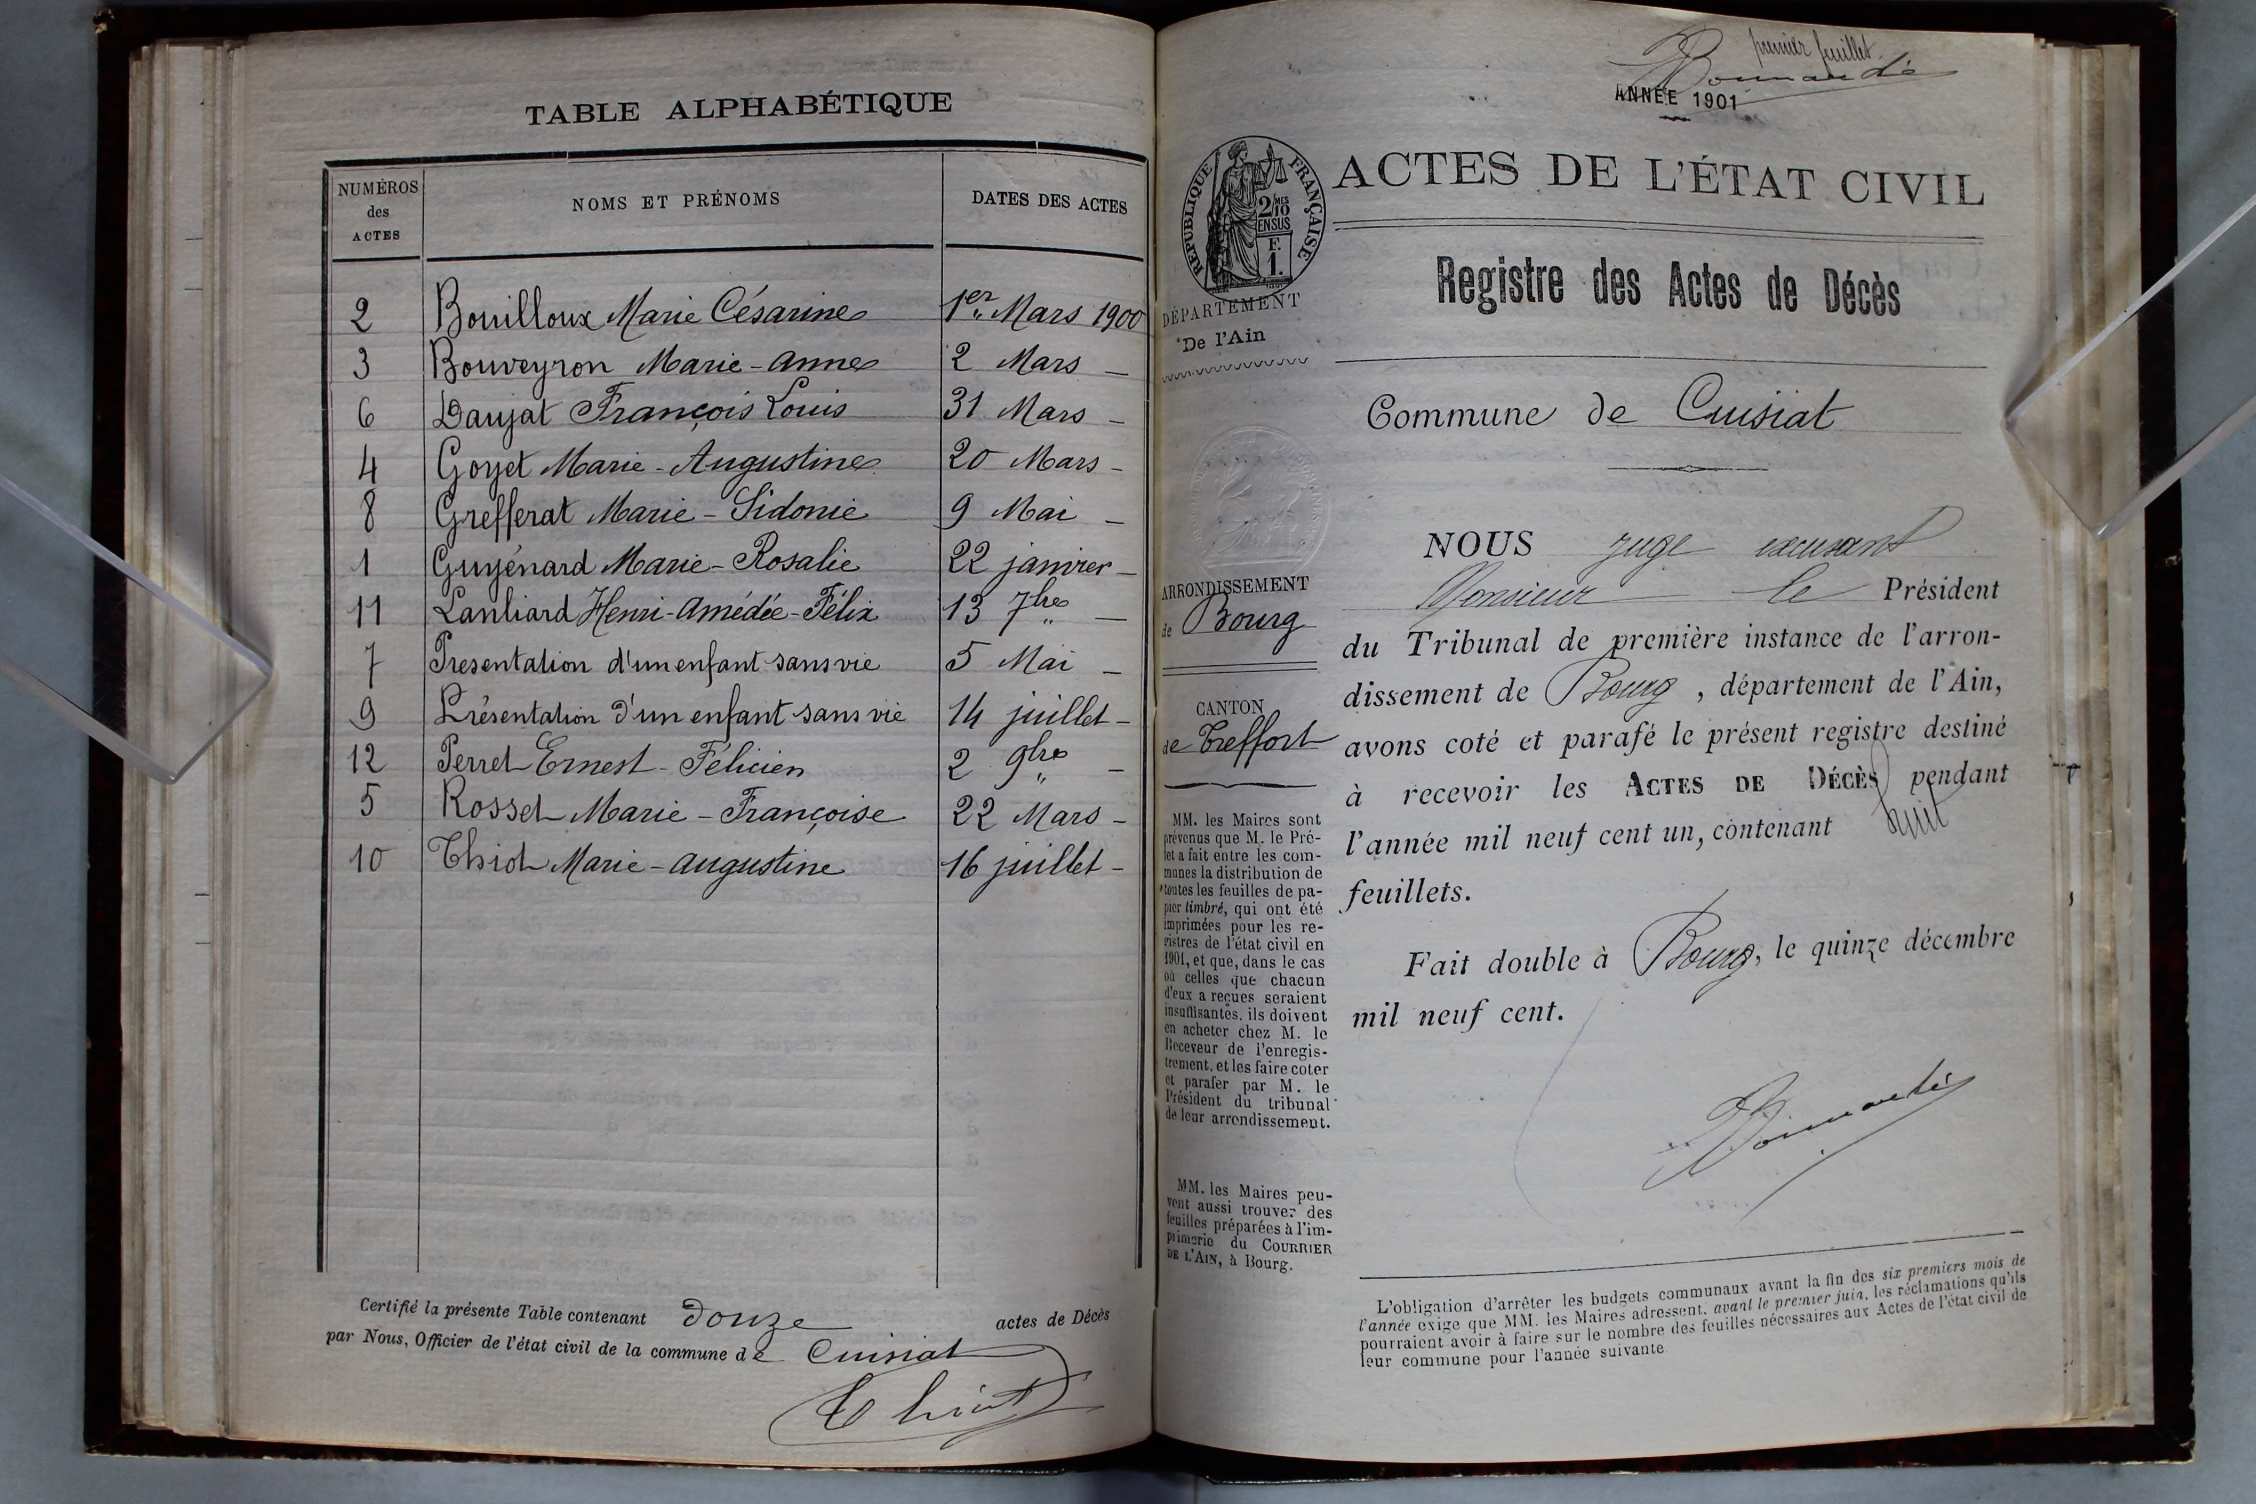 TABLE ALPHABÉTIQUE
NUMÉROS des ACTES NOMS ET PRÉNOMS DATES DES ACTES
2 Bouilloux Marie Césarine 1er Mars 1900
3 Bouveyron Marie-Anne 2 Mars —
6 Daujat François Louis 31 Mars —
4 Goyet Marie-Augustine 20 Mars —
8 Grefferat Marie-Sidonie 9 Mai —
1 Guyénard Marie-Rosalie 22 janvier —
11 Lanliard Henri-Amédée-Félix 13 7bre —
7 Presentation d'un enfant sans vie 5 Mai —
9 Présentation d'un enfant sans vie 14 juillet —
12 Perret Ernest-Félicien 2 9bre —
5 Rosset Marie-Françoise 22 Mars —
10 Thiot Marie-augustine 16 juillet —
Certifié la présente Table contenant douze actes de Décès
par Nous, Officier de l'état civil de la commune de Cuisiat
Thiot
premier feuillet
ANNÉE 1901
ACTES DE L'ÉTAT CIVIL
RÉPUBLIQUE FRANÇAISE
2/10 EN SUS
F.
1.
DÉPARTEMENT
De l'Ain
Registre des Actes de Décès
Commune de Cuisiat
ARRONDISSEMENT
de Bourg
CANTON
de Treffort
MM. les Maires sont
prévenus que M. le Pré-
fet a fait entre les com-
munes la distribution de
toutes les feuilles de pa-
pier timbré, qui ont été
imprimées pour les re-
gistres de l'état civil en
1901, et que, dans le cas
où celles que chacun
d'eux a reçues seraient
insuffisantes, ils doivent
en acheter chez M. le
Receveur de l'enregis-
trement, et les faire coter
et parafer par M. le
Président du tribunal
de leur arrondissement.
MM. les Maires peu-
vent aussi trouver des
feuilles préparées à l'im-
primerie du COURRIER
DE L'AIN, à Bourg.
NOUS juge excusant
Monsieur le Président
du Tribunal de première instance de l'arron-
dissement de Bourg, département de l'Ain,
avons coté et parafé le présent registre destiné
à recevoir les ACTES DE DÉCÈS pendant
l'année mil neuf cent un, contenant huit
feuillets.
Fait double à Bourg, le quinze décembre
mil neuf cent.
L'obligation d'arrêter les budgets communaux avant la fin des six premiers mois de
l'année exige que MM. les Maires adressent, avant le premier juin, les réclamations qu'ils
pourraient avoir à faire sur le nombre des feuilles nécessaires aux Actes de l'état civil de
leur commune pour l'année suivante.